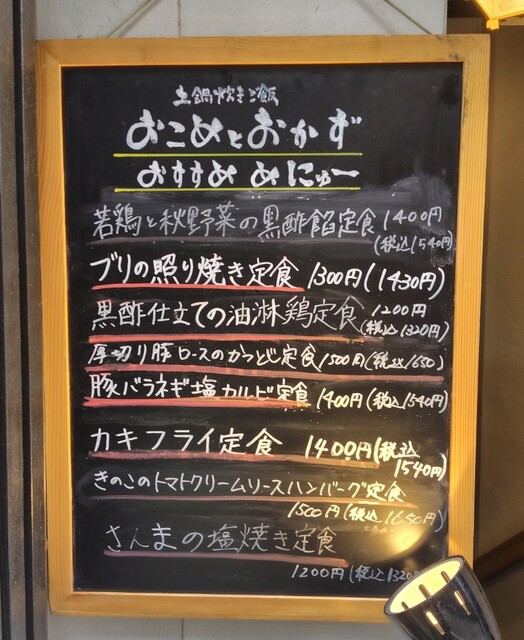 土鍋炊きご飯
おこめとおかず
おすすめ めにゅー
若鶏と秋野菜の黒酢餡定食 1400円
(税込1540円)
ブリの照り焼き定食 1300円(1430円)
黒酢仕立ての油淋鶏定食 1200円
(税込1320円)
厚切り豚ロースのかつとじ定食 1500円(税込1650)
豚バラネギ塩カルビ定食 1400円(税込1540円)
カキフライ定食 1400円(税込
1540円)
きのこのトマトクリームソースハンバーグ定食
1500円(税込1650円)
さんまの塩焼き定食
1200円(税込1320